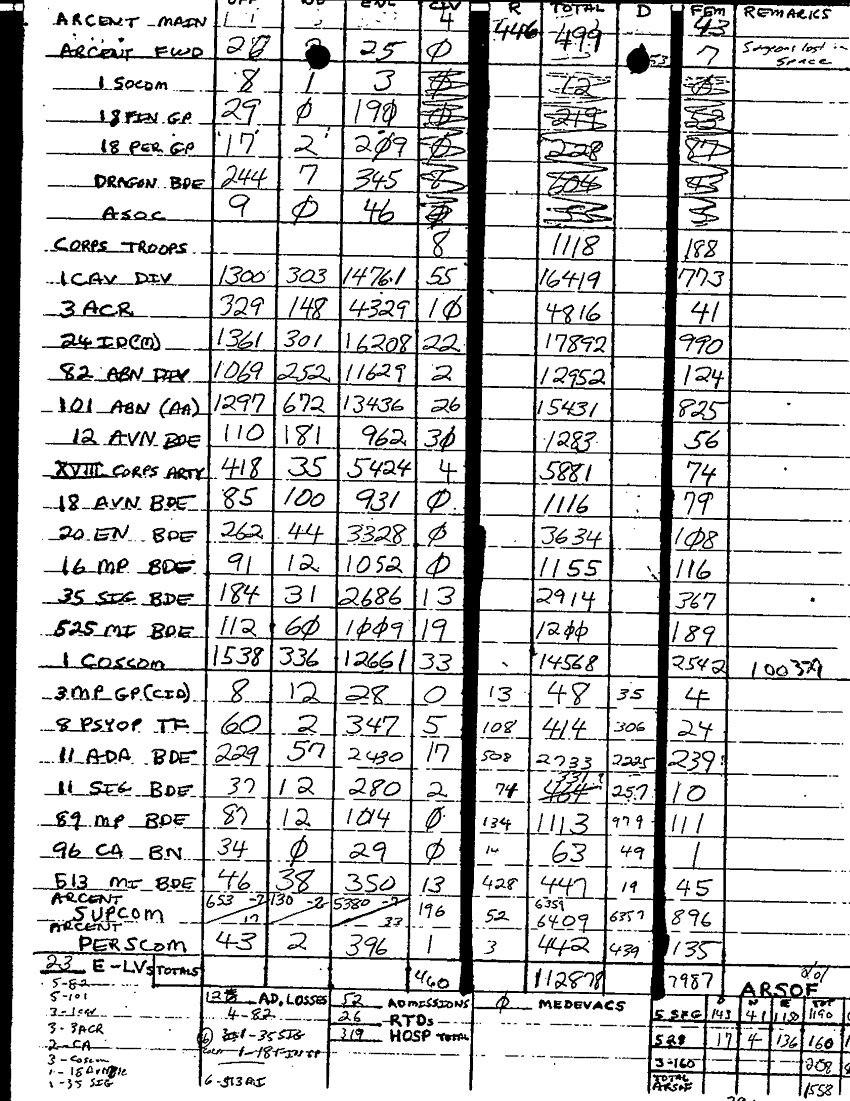 OFF WO ENL CIV R TOTAL D FEM REMARKS
ARCENT MAIN 4 446 499 43
ARCENT FWD 28 25 Ø 53 7 lost in space
1 SOCOM 8 1 3 Ø 12 Ø
18 FIN GP 29 Ø 19Ø Ø 219 53
18 PER GP 17 2 2Ø9 Ø 228 87
DRAGON BDE 244 7 345 8 604 45
ASOC 9 Ø 46 Ø 55 3
CORPS TROOPS 8 1118 188
1 CAV DIV 1300 303 14761 55 16419 773
3 ACR 329 148 4329 1Ø 4816 41
24 ID(M) 1361 301 16208 22 17892 990
82 ABN DIV 1069 252 11629 2 12952 124
101 ABN (AA) 1297 672 13436 26 15431 825
12 AVN BDE 110 181 962 3Ø 1283 56
XVIII CORPS ARTY 418 35 5424 4 5881 74
18 AVN BDE 85 100 931 Ø 1116 79
20 EN BDE 262 44 3328 Ø 3634 1Ø8
16 MP BDE 91 12 1052 Ø 1155 116
35 SIG BDE 184 31 2686 13 2914 367
525 MI BDE 112 6Ø 1ØØ9 19 12ØØ 189
1 COSCOM 1538 336 12661 33 14568 2542
3 MP GP (CID) 8 12 28 0 13 48 35 4
8 PSYOP TF 60 2 347 5 108 414 306 24
11 ADA BDE 229 57 2430 17 508 2733 2225 239
11 SIG BDE 37 12 280 2 74 331 257 10
89 MP BDE 87 12 1014 Ø 134 1113 979 111
96 CA BN 34 Ø 29 Ø 14 63 49 1
513 MI BDE 46 38 350 13 428 447 19 45
ARCENT SUPCOM 653 -2 17 130 -2 5380 -7 33 196 52 6359 6409 6357 896
ARCENT PERSCOM 43 2 396 1 3 442 439 135
23 E-LVs TOTALS 460 112878 7987
5-82
5-101
3-1CAV
3-3ACR
2-CA
3-COSCOM
1-35 SIG
128 AD. LOSSES 52 ADMISSIONS Ø MEDEVACS
4-82 26 RTDs
35 SIG 319 HOSP TOTAL
1-18 FIN GP
6-513 MI
ARSOF
O W E TOT
5 SFG 143 41 1190
528 17 4 136 160
3-160 208
TOTAL ARSOF 1558